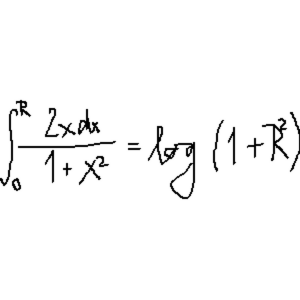 ∫₀ᴿ 2x dx / (1 + x²) = log (1 + R²)